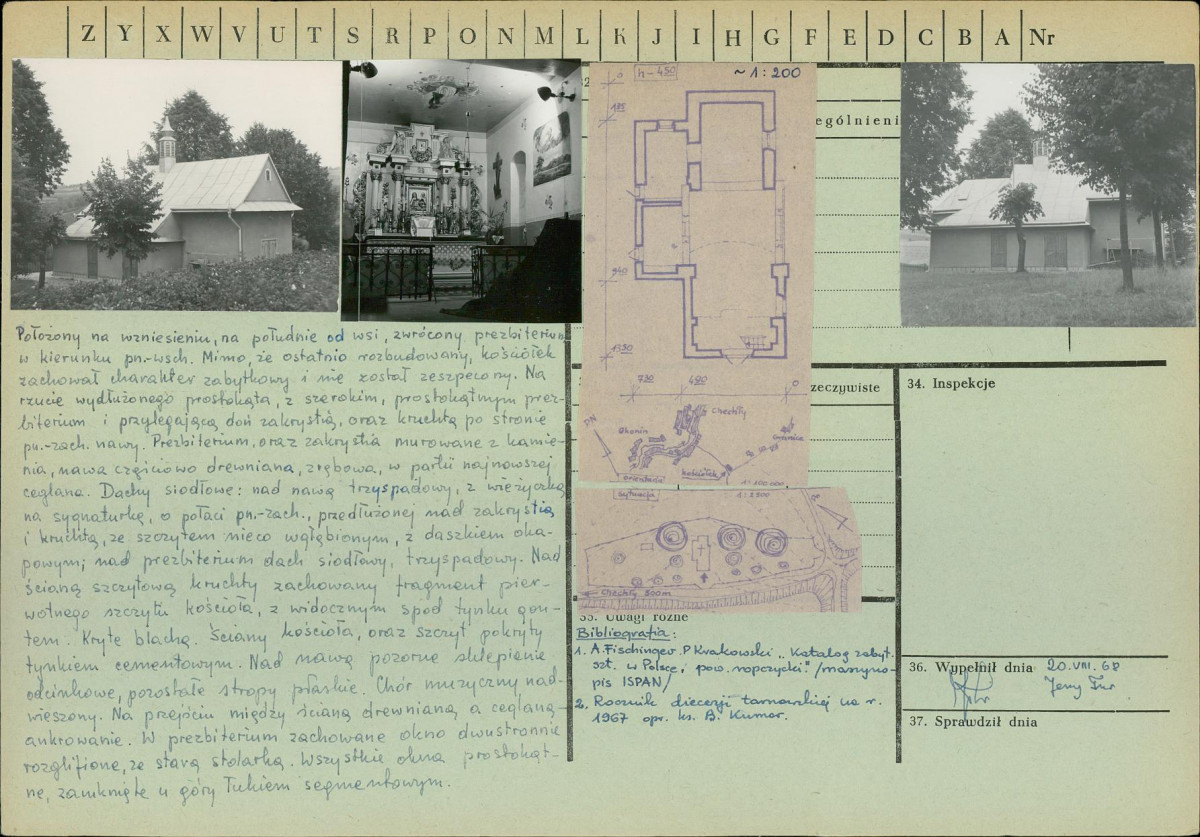 Z Y X W V U T S R P O N M L K J I H G F E D C B A Nr
Położony na wzniesieniu, na południe od wsi, zwrócony prezbiterium
w kierunku pn.-wsch. Mimo, że ostatnio rozbudowany, kościółek
zachował charakter zabytkowy i nie został zeszpecony. Na
rzucie wydłużonego prostokąta, z szerokim, prostokątnym prez-
biterium i przylegającą doń zakrystią, oraz kruchtą po stronie
pn.-zach. nawy. Prezbiterium, oraz zakrystia murowane z kamie-
nia, nawa częściowo drewniana, zrębowa, w partii najnowszej
ceglana. Dachy siodłowe: nad nawą trzyspadowy, z wieżyczką
na sygnaturkę, o połaci pn.-zach., przedłużonej nad zakrystią
i kruchtą, ze szczytem nieco wgłębionym, z daszkiem oka-
powym; nad prezbiterium dach siodłowy, trzyspadowy. Nad
ścianą szczytową kruchty zachowany fragment pier-
wotnego szczytu kościoła, z widocznym spod tynku gon-
tem. Kryte blachą. Ściany kościoła, oraz szczyt pokryty
tynkiem cementowym. Nad nawą pozorne sklepienie
odcinkowe, pozostałe stropy płaskie. Chór muzyczny nad-
wieszony. Na przejściu między ścianą drewnianą a ceglaną-
ankrowanie. W prezbiterium zachowane okno dwustronnie
rozglifione, ze starą stolarką. Wszystkie okna prostokąt-
ne, zamknięte u góry łukiem segmentowym.
h-450
~ 1:200
0
185
940
1350
720
490
0
PN
Okonin
Chechły
Granica
kościółek
orientacja
1:100 000
sytuacja
1:2500
Chechły 500m
ególnieni
zeczywiste
34. Inspekcje
35. Uwagi różne
Bibliografia:
1. A. Fischinger P. Krakowski "Katalog zabyt.
szt. w Polsce, pow. ropczycki" /maszyno-
pis ISPAN/
2. Rocznik diecezji tarnowskiej na r.
1967 opr. ks. B. Kumor.
36. Wypełnił dnia 20.VIII.68
Jerzy Tur
37. Sprawdził dnia